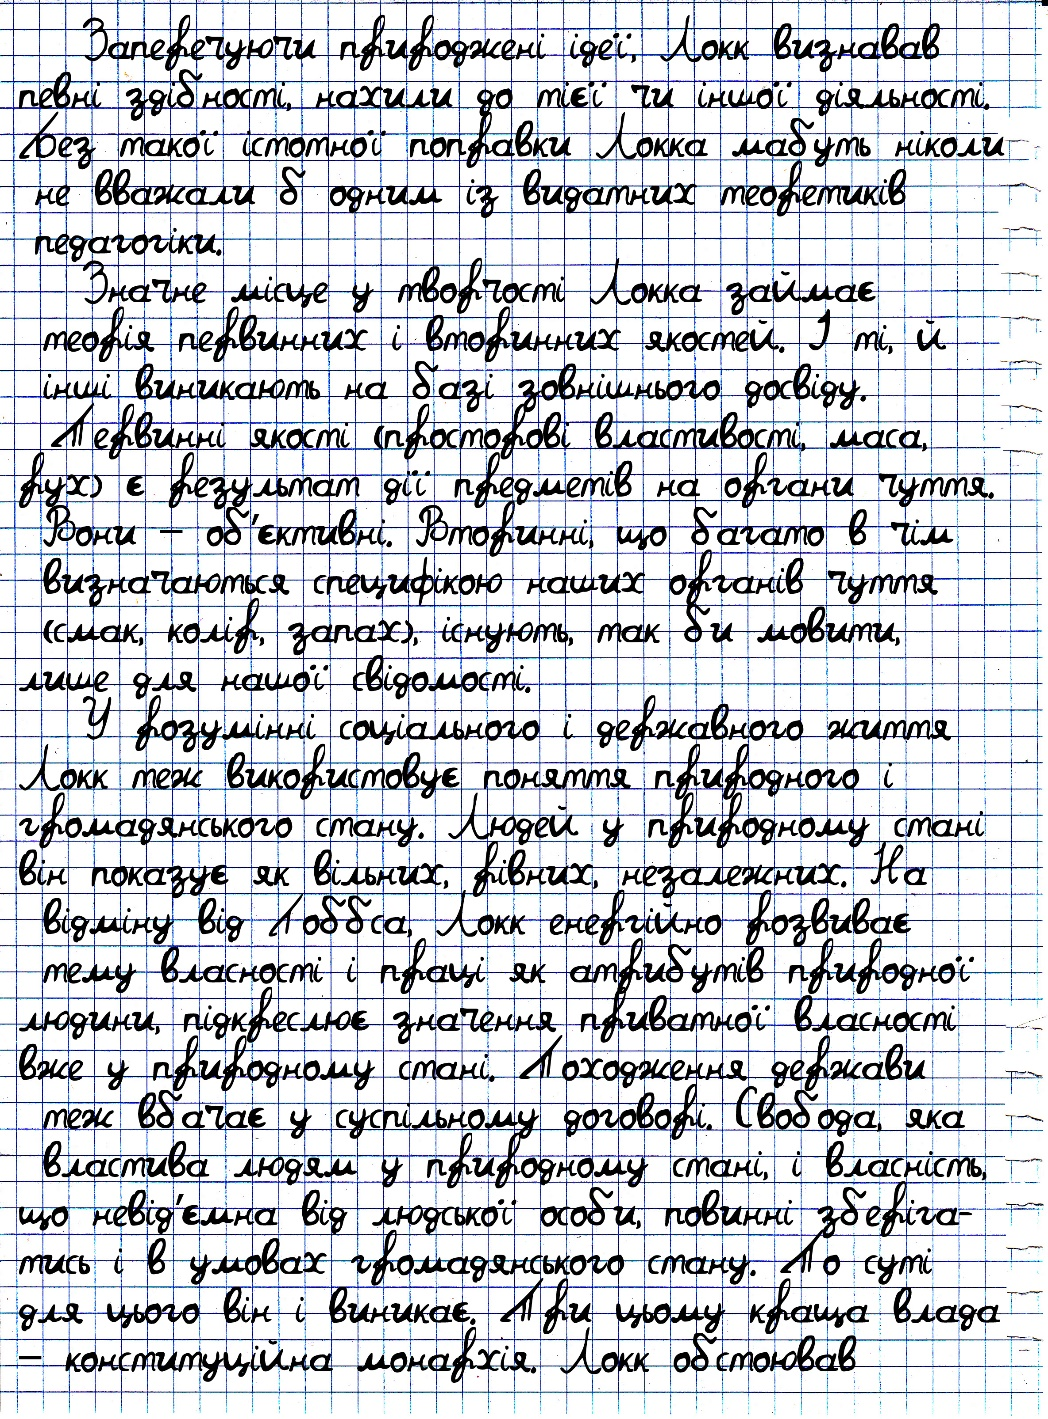 Заперечуючи природжені ідеї, Локк визнавав
певні здібності, нахили до тієї чи іншої діяльності.
Без такої істотної поправки Локка мабуть ніколи
не вважали б одним із видатних теоретиків
педагогіки.
Значне місце у творчості Локка займає
теорія первинних і вторинних якостей. І ті, й
інші виникають на базі зовнішнього досвіду.
Первинні якості (просторові властивості, маса,
рух) є результат дії предметів на органи чуття.
Вони – об'єктивні. Вторинні, що багато в чім
визначаються специфікою наших органів чуття
(смак, колір, запах), існують, так би мовити,
лише для нашої свідомості.
У розумінні соціального і державного життя
Локк теж використовує поняття природного і
громадянського стану. Людей у природному стані
він показує як вільних, рівних, незалежних. На
відміну від Гоббса, Локк енергійно розвиває
тему власності і праці як атрибутів природної
людини, підкреслює значення приватної власності
вже у природному стані. Походження держави
теж вбачає у суспільному договорі. Свобода, яка
властива людям у природному стані, і власність,
що невід'ємна від людської особи, повинні зберіга-
тись і в умовах громадянського стану. По суті
для цього він і виникає. При цьому краща влада
– конституційна монархія. Локк обстоював